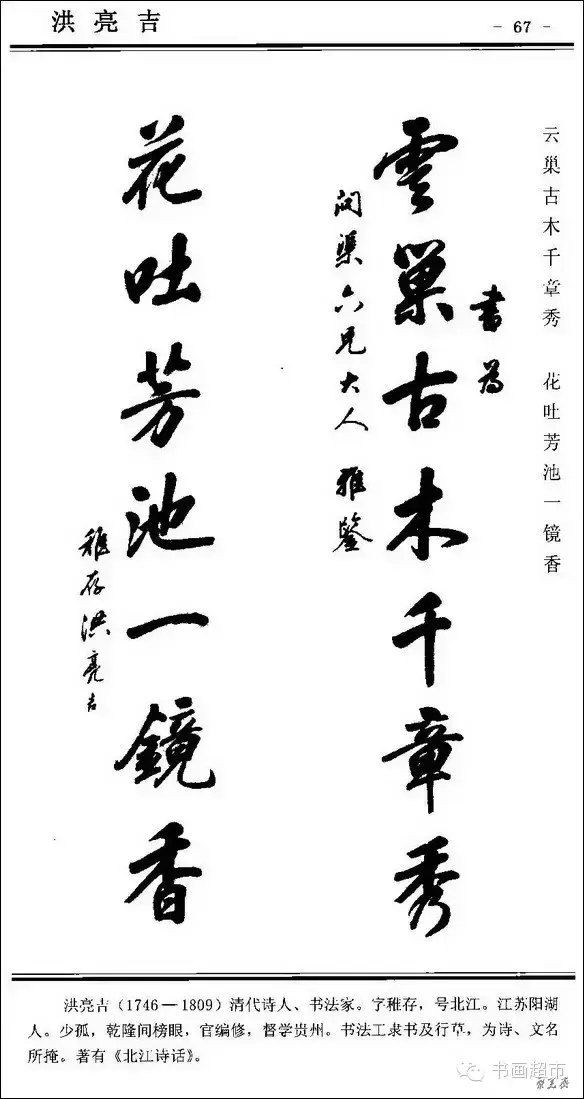 洪亮吉
- 67 -
云巢古木千章秀 花吐芳池一镜香
書為
雲巢古木千章秀
閬渠六兄大人 雅鑒
花吐芳池一鏡香
稚存洪亮吉
洪亮吉（1746—1809）清代诗人、书法家。字稚存，号北江。江苏阳湖
人。少孤，乾隆间榜眼，官编修，督学贵州。书法工隶书及行草，为诗、文名
所掩。著有《北江诗话》。
书画超市